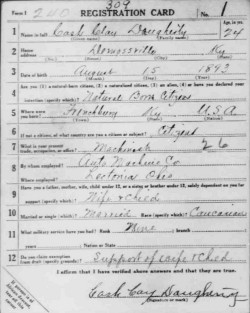 309
Form 1 240 REGISTRATION CARD No. 1
1 Name in full Cash Clay Daugherty Age, in yrs. 24
2 Home address Ky
3 Date of birth August 15 1892
4 Are you (1) a natural-born citizen, (2) a naturalized citizen, (3) an alien, (4) or have you declared your intention (specify which)? Natural Born Citizen
5 Where were you born? Frenchburg Ky USA
6 If not a citizen, of what country are you a citizen or subject? Citizen
7 What is your present trade, occupation, or office? Machinist 26
8 By whom employed? Auto Machine Co
Where employed? Leetonia Ohio
9 Have you a father, mother, wife, child under 12, or a sister or brother under 12, solely dependent on you for support (specify which)? Wife & Child
10 Married or single (which)? Married Race (specify which)? Caucasian
11 What military service have you had? Rank None; branch
years; Nation or State
12 Do you claim exemption from draft (specify grounds)? Support of wife & Child
I affirm that I have verified above answers and that they are true.
Cash Clay Daugherty
(Signature or mark)